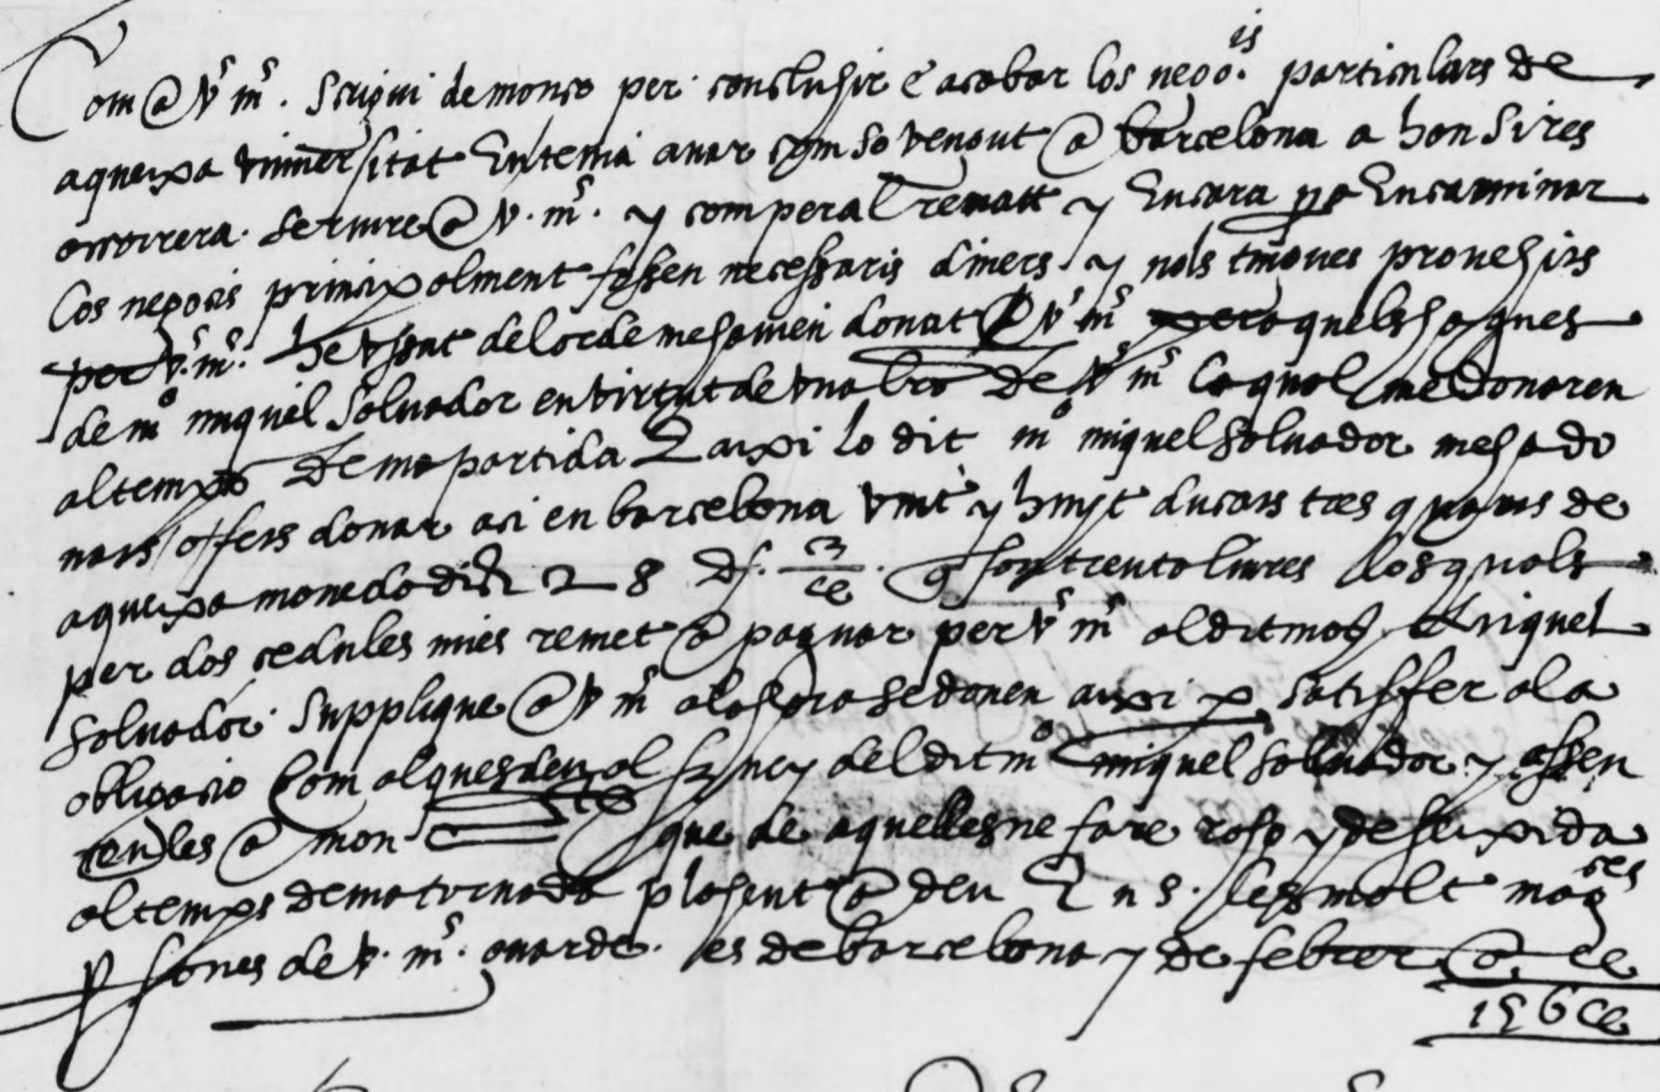 Com @ v.s m.s scrigui de monço per concluhir e acabar los nego.is particulars de
aqueixa vniuersitat Entenia anar com so vengut @ barcelona a hon si res
occorrera seruire @ v. m.s y com per al rematt y Encara pa Encaminar
los negocis principalment fossen necessaris diners y nols tingues prouehits
per v.s m.s he vsat del orde me hauien donat @ v.s m.s pera quels hagues
de m.o miquel saluador en virtut de vna lra de v.s m.s la qual me donaren
al temps de ma partida E aixi lo dit m.o miquel saluador me ha do
nats / offers donar aci en barcelona vint y huyt ducats tres quarts de
aqueixa moneda dich 28 d. 3/4 q son trenta liures los quals
per dos cedules mies remet @ paguar per v.s m.s al dit mos. Miquel
saluador supplique @ v.s m.s a la hora se donen aixi p satisffer a la
obligacio com al ques deu al del dit m.o miquel saluador y assen
ten les @ mon que de aquelles ne fare raho y desexida
al temps de ma tornada plasent @ deu E n s. les molt mag.ces
p sones de v. m.s guarde. es de barcelona y de febrer @ 4
1564